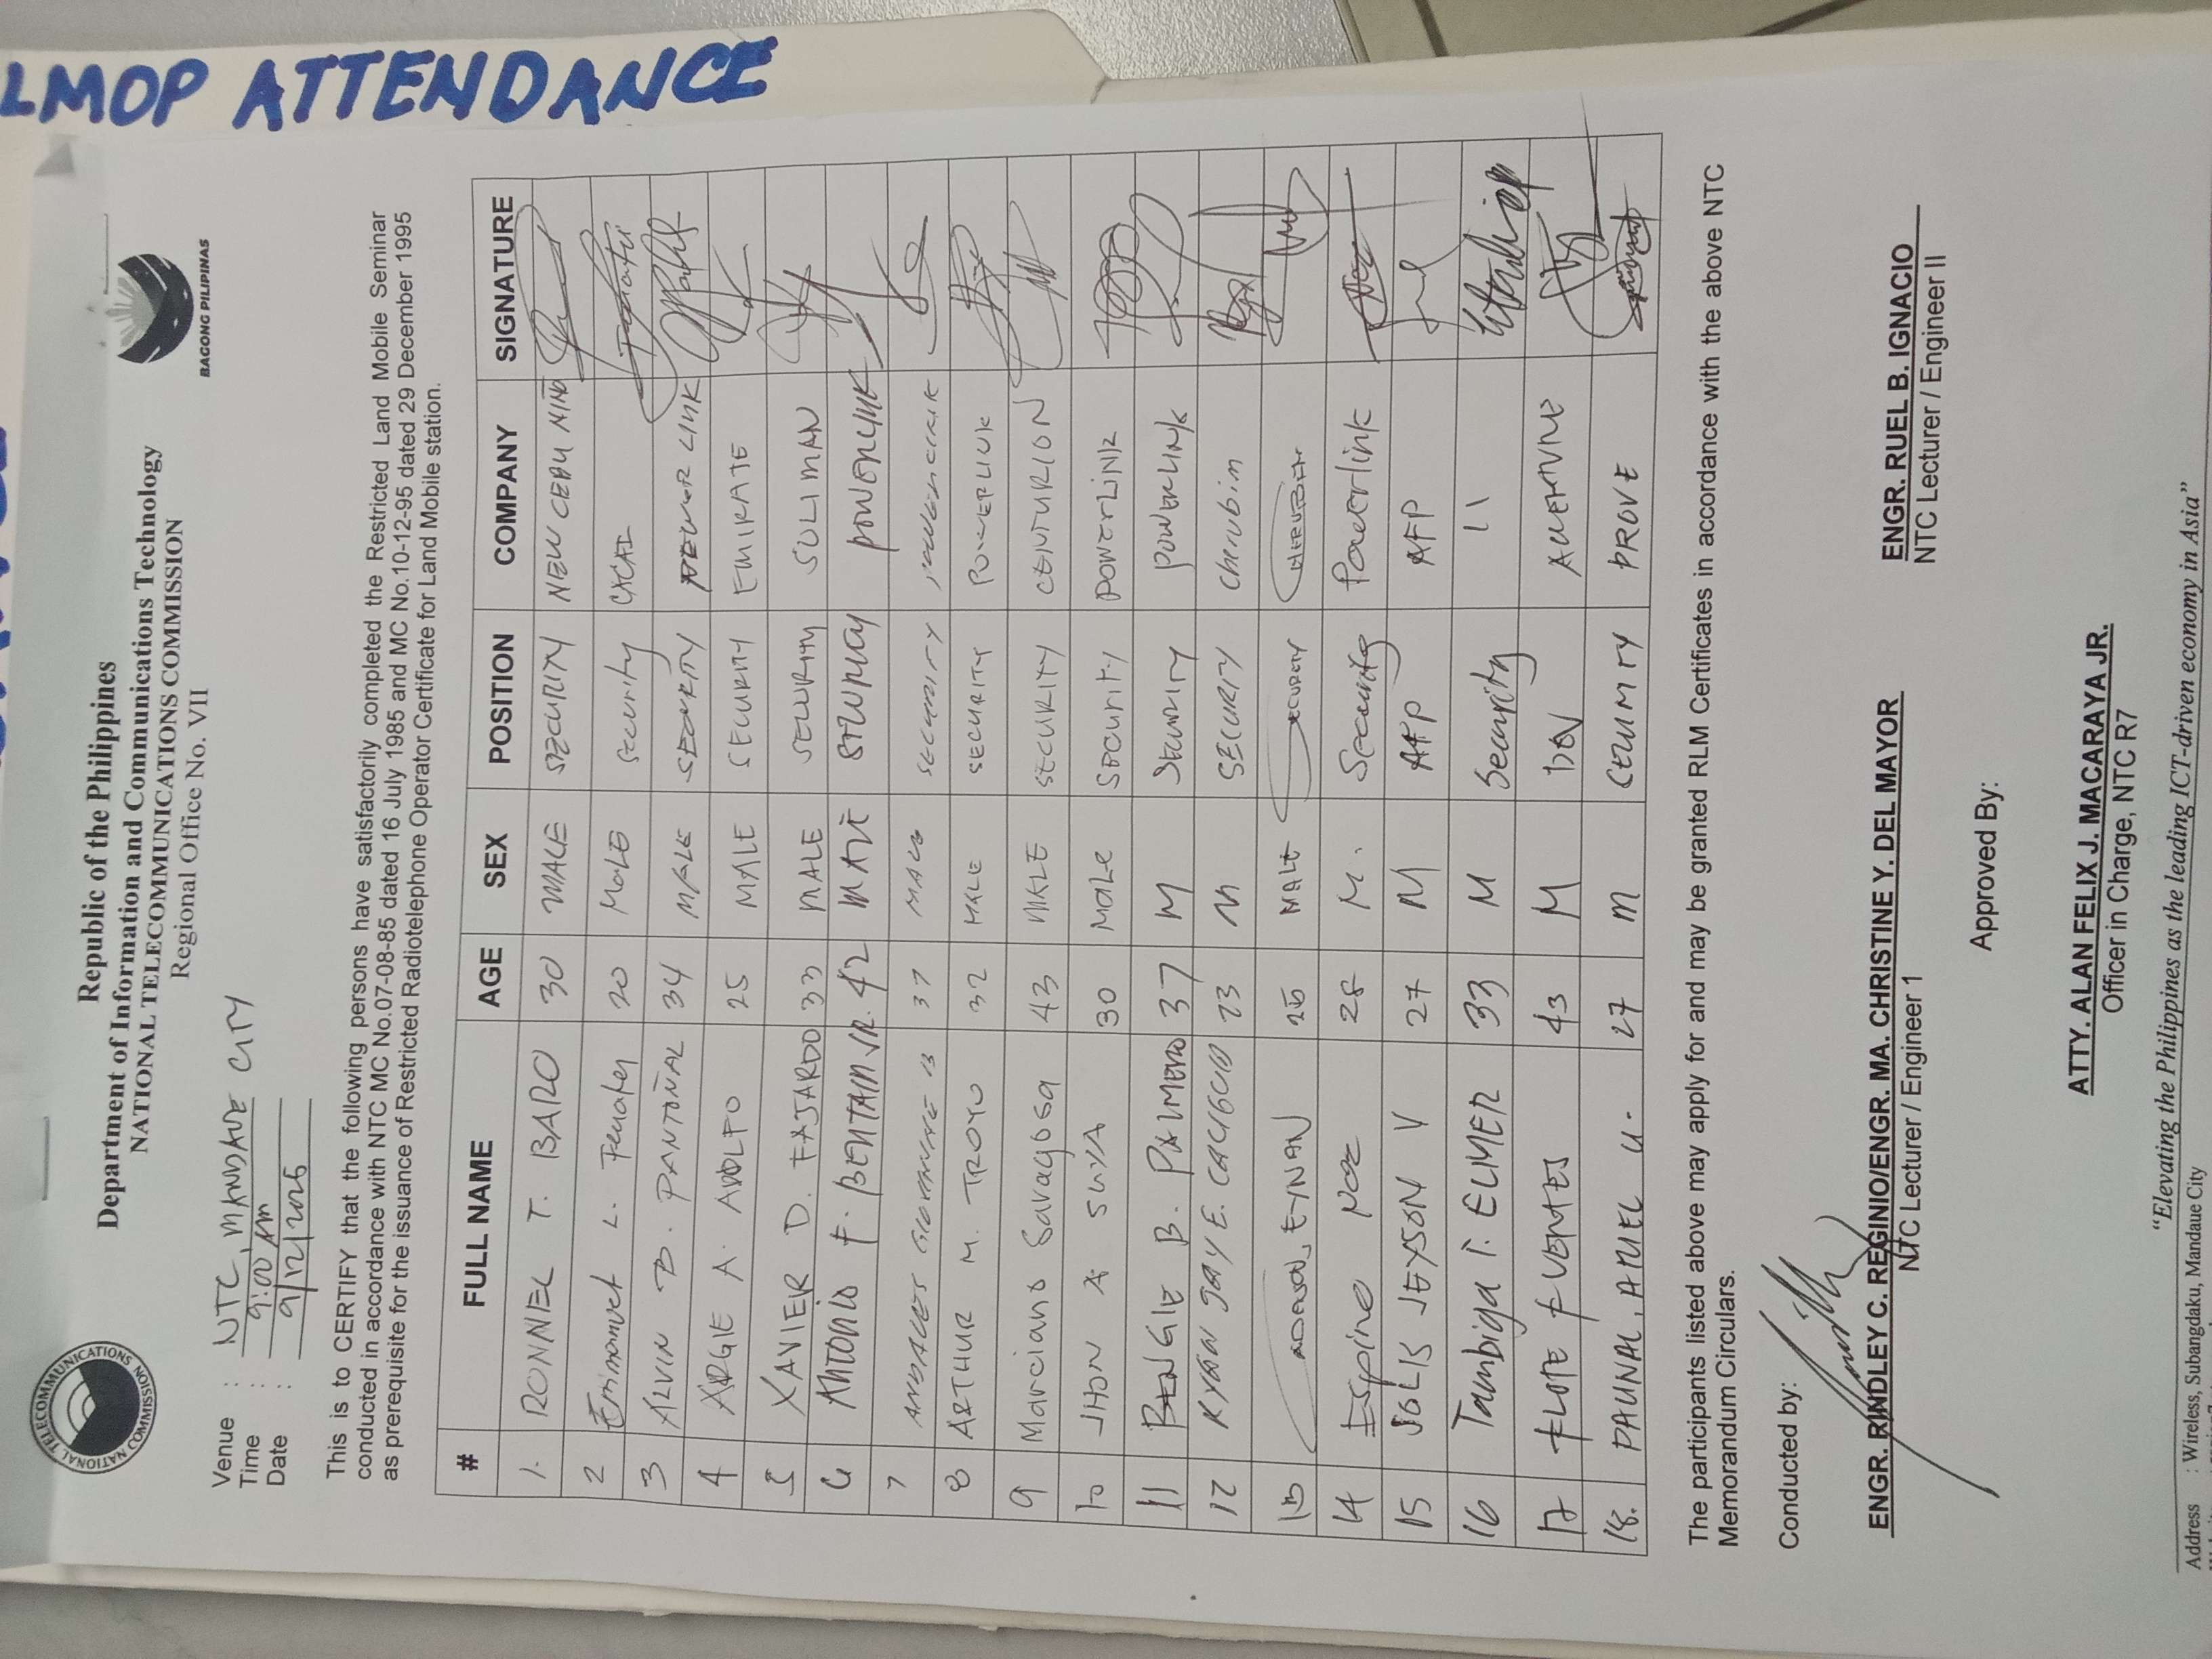 LMOP ATTENDANCE
NATIONAL TELECOMMUNICATIONS COMMISSION
Republic of the Philippines
Department of Information and Communications Technology
NATIONAL TELECOMMUNICATIONS COMMISSION
Regional Office No. VII
BAGONG PILIPINAS
Venue : NTC, MANDAUE CITY
Time : 9:00 AM
Date : 9/12/2025
This is to CERTIFY that the following persons have satisfactorily completed the Restricted Land Mobile Seminar
conducted in accordance with NTC MC No.07-08-85 dated 16 July 1985 and MC No.10-12-95 dated 29 December 1995
as prerequisite for the issuance of Restricted Radiotelephone Operator Certificate for Land Mobile station.
# FULL NAME AGE SEX POSITION COMPANY SIGNATURE
1. RONNIEL T. BARO 30 MALE SECURITY NEW CEBU
2 Emmanuel L. 20 Male Security
3 ALVIN B. PANTOÑAL 34 MALE SECURITY POWER LINK
4 ARGIE A. ADOLFO 25 MALE SECURITY EMIRATE
5 XAVIER D. FAJARDO 33 MALE SECURITY SULIMAN
6 ANTONIO F. BENTAIN JR. 42 MALE SECURITY POWERLINK
7 37 MALE SECURITY POWERLINK
8 ARTHUR M. TROYO 32 MALE SECURITY POWERLINK
9 Marciano Savagosa 43 MALE SECURITY CENTURION
10 JHON A SUYA 30 Male Security POWERLINK
11 BENGIE B. PALMERO 37 M SECURITY POWERLINK
12 RYAN JAY E. 23 M SECURITY Cherubim
13 EYNAN MALE SECURITY CHERUBIM
14 Espino Noe 28 M. Security Powerlink
15 SOLIS JEYSON V 27 M AFP AFP
16 Tambiga P. ELMER 33 M Security 11
17 FLOTE FUENTES 43 M
18. PAUNAL, ARIEL U. 27 M PROVE
The participants listed above may apply for and may be granted RLM Certificates in accordance with the above NTC
Memorandum Circulars.
Conducted by:
ENGR. RINDLEY C. REGINIO/ENGR. MA. CHRISTINE Y. DEL MAYOR
NTC Lecturer / Engineer 1
ENGR. RUEL B. IGNACIO
NTC Lecturer / Engineer II
Approved By:
ATTY. ALAN FELIX J. MACARAYA JR.
Officer in Charge, NTC R7
“Elevating the Philippines as the leading ICT-driven economy in Asia”
Address : Wireless, Subangdaku, Mandaue City